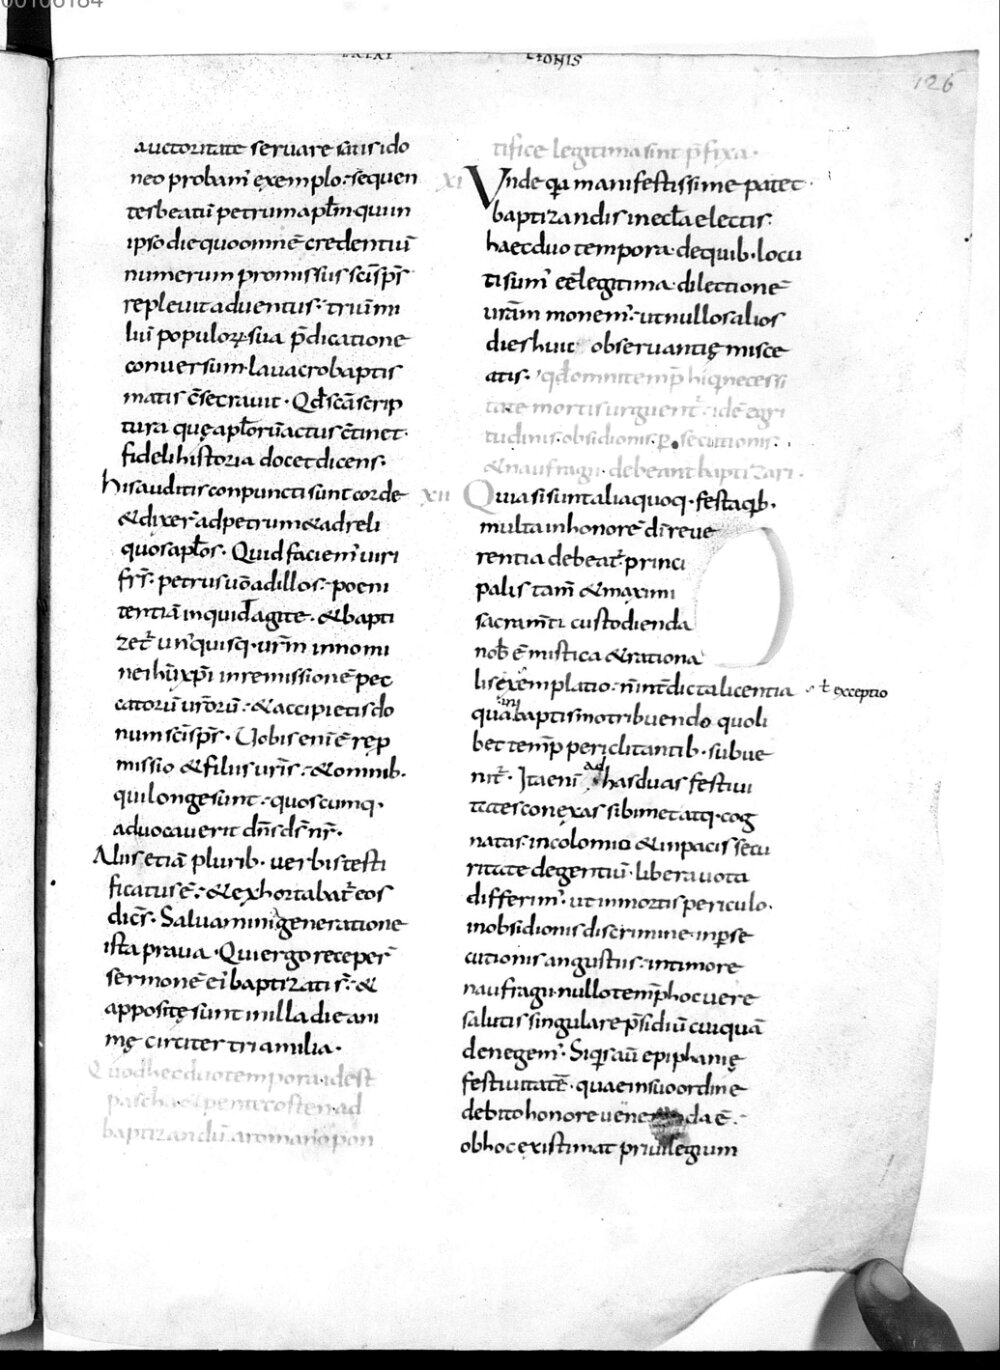 00106184
CTIONIS
126
auctoritate seruare satis ido
neo probam̄ exemplo: sequen
tes beatū petrum apl̄m· qui in
ipso die quo omnē credentiū
numerum promissus sc̄i sp̄s
repleuit aduentus: triū mi
liū populoꝝ sua p̄dicatione
conuersum· lauacro baptis
matis c̄secrauit · Qd̄ sc̄a scrip
tura quę apl̄orū actus c̄tinet·
fideli historia docet dicens·
his auditis conpuncti sunt corde
& dixer̄ ad petrum & ad reli
quos apl̄os· Quid faciem̄ uiri
fr̄s· petrus u̅o ad illos· poeni
tentiā inquid agite· & bapti
zet̄ un̄ quisq· ur̄m in nomi
ne ih̄u xp̄i in remissionē pec
catorū ur̄orū: & accipietis do
num sc̄i sp̄s· Uobis enī ē rep̄
missio & filiis ur̄is: & omnib·
qui longe sunt: quoscumq·
aduocauerit dn̄s ds̄ nr̄·
Aliis etiā plurib· uerbis testi
ficatus ē: & exhortabat̄ eos
dicēs· Saluamini a generatione
ista praua· Qui ergo receper̄
sermonē ei baptizati s̄: &
appositę sunt in illa die ani
mę circiter tria milia·
Quod hec duo tempora· id est
pascha & pentecosten ad
baptizandū a romano pon
tifice legitima sint p̄fixa·
XI Vnde q̄a manifestissime patet
baptizandis in eccl̄a electis:
haec duo tempora· de quib· locu
ti sum̄ eē legitima· dilectionē
ur̄am monem̄· ut nullos alios
dies huic obseruantię misce
atis· qd̄ omni temp̄ hi q̄ necessi
tate mortis urguent̄: id ē egri
tudinis· obsidionis· ꝑsecutionis·
& naufragii· debeant baptizari·
XII Quia si sunt alia quoq· festa q̄b·
multa in honorē dī reue
rentia debeat̄· princi
palis tam̄ & maximi
sacram̄ti custodienda
nob̄ ē mistica & rationa
lis exemplatio: n̄ int̄dicta licentia
ł exceptio
qua in baptismo tribuendo quoli
bet temp̄ periclitantib· subue
nit̄· Ita enī ad has duas festiui
tates conexas sibimet atq· cog
natas· incolomi & in pacis secu
ritate degentiū· libera uota
differim̄· ut in mortis periculo·
in obsidionis discrimine· in ꝑse
cutionis angustiis· in timore
naufragii· nullo temp̄ hoc uere
salutis singulare p̄sidiū cuiquā
denegem̄· Si q̄s aū epiphanię
festiuitatē· quae in suo ordine
debito honore ueneranda ē·
ob hoc existimat priuilegium